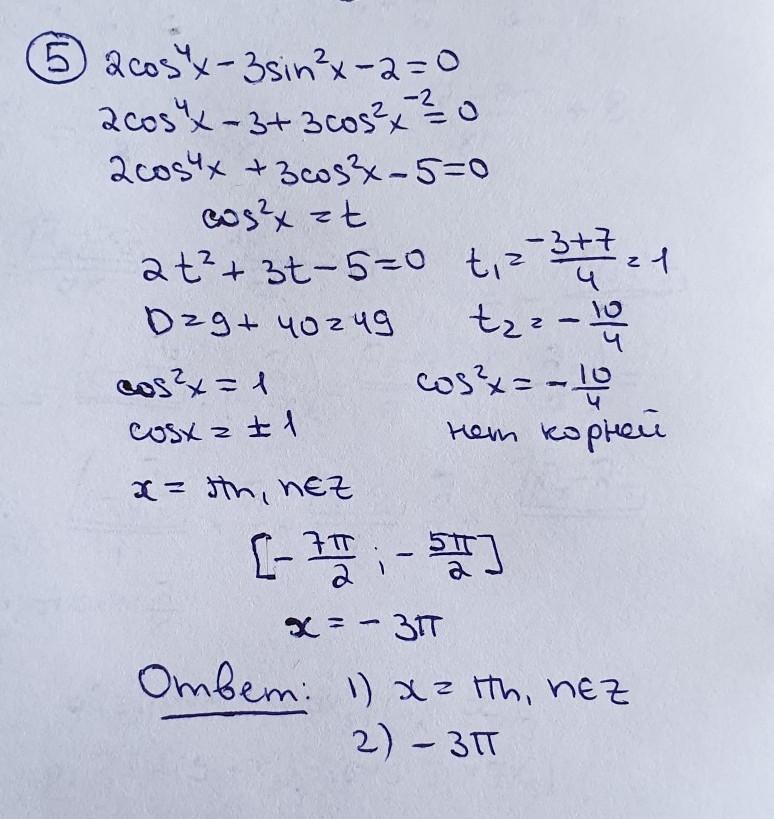 ⑤ 2cos⁴x - 3sin²x - 2 = 0
2cos⁴x - 3 + 3cos²x - 2 = 0
2cos⁴x + 3cos²x - 5 = 0
cos²x = t
2t² + 3t - 5 = 0 t₁ = (-3+7)/4 = 1
D = 9 + 40 = 49 t₂ = -10/4
cos²x = 1 cos²x = -10/4
cosx = ±1 нет корней
x = πn, n∈Z
[-7π/2; -5π/2]
x = -3π
Ответ: 1) x = πn, n∈Z
2) -3π